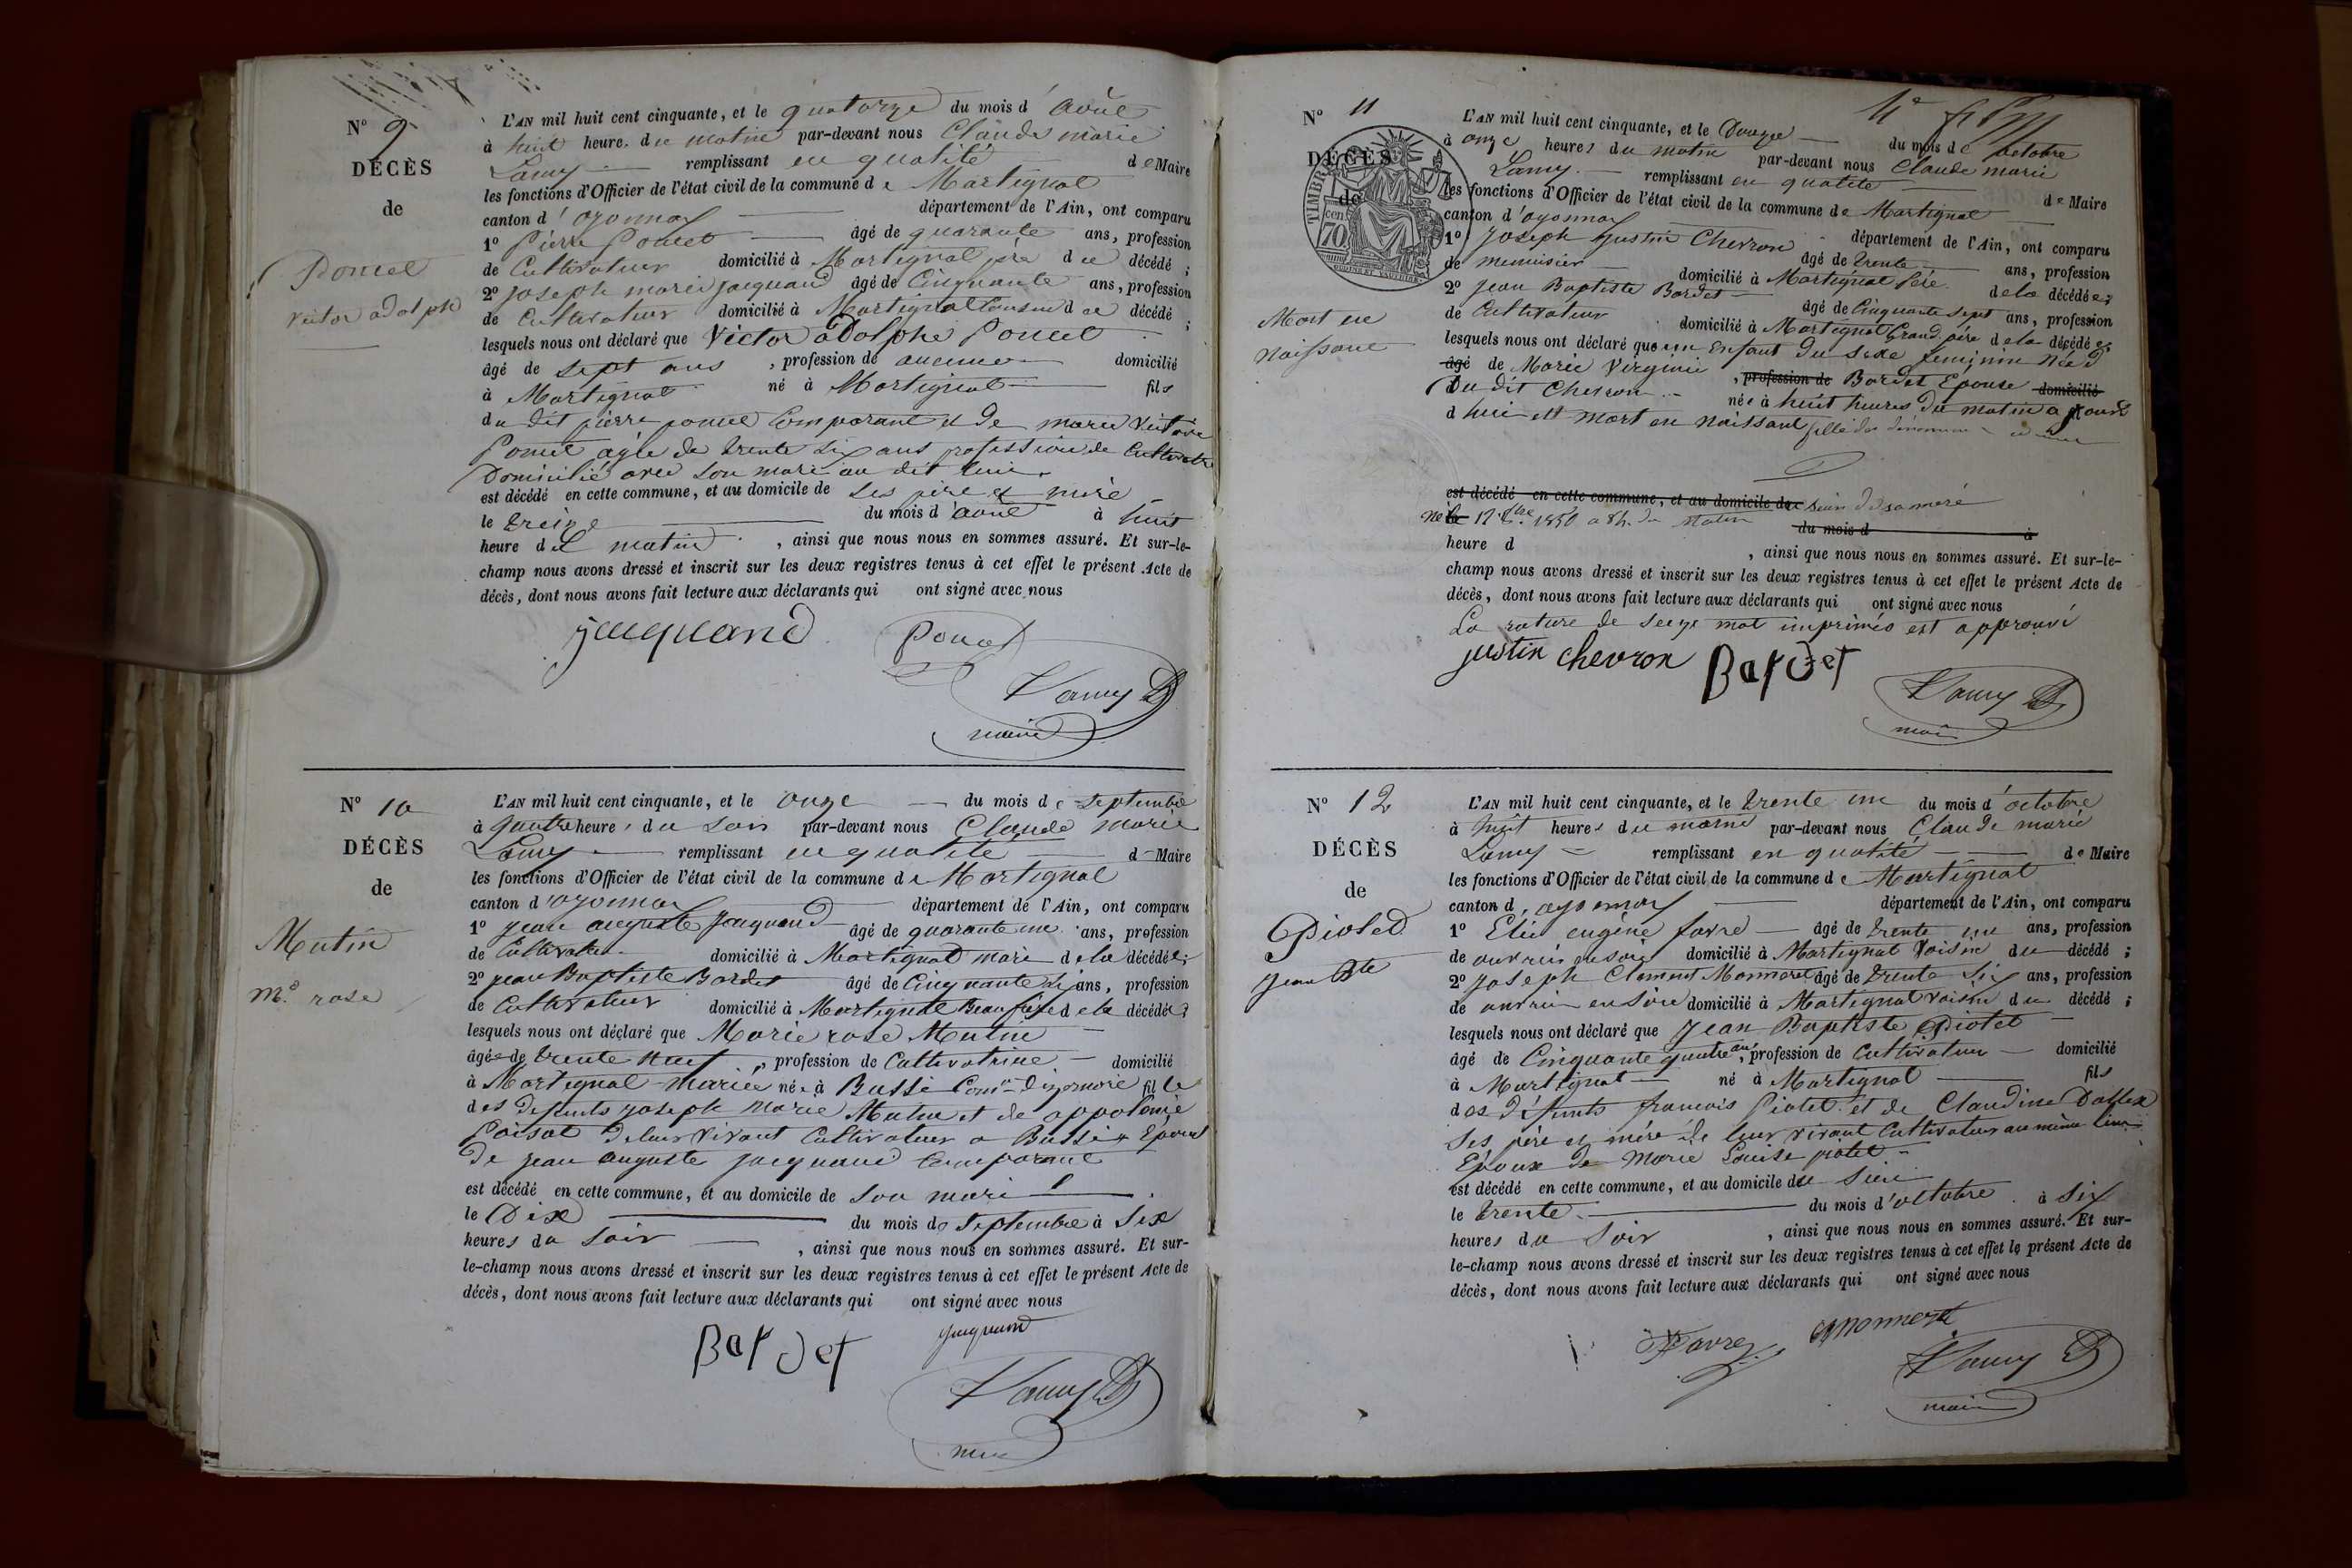 N° 9
DÉCÈS
de
Poncet
Victor adolphe
L'AN mil huit cent cinquante, et le quatorze du mois d' août
à huit heure. du matin par-devant nous Claude marie
Lamy remplissant en qualité de Maire
les fonctions d'Officier de l'état civil de la commune de Martignat
canton d'oyonnax département de l'Ain, ont comparu
1° Pierre Poncet âgé de quarante ans, profession
de Cultivateur domicilié à Martignat père du décédé ;
2° joseph marie jacquand âgé de Cinquante ans, profession
de Cultivateur domicilié à Martignat Cousin du décédé ;
lesquels nous ont déclaré que Victor aDolphe Poncet
âgé de sept ans , profession de aucune domicilié
à Martignat né à Martignat fils
du dit pierre poncet Comparant et de marie Victoire
Poncet agée de trente six ans profession de Cultivatrice
Domicilié avec son mari au dit lieu.
est décédé en cette commune, et au domicile de ses père et mère
le treize du mois d'août à huit
heure du matin , ainsi que nous nous en sommes assuré. Et sur-le-
champ nous avons dressé et inscrit sur les deux registres tenus à cet effet le présent Acte de
décès, dont nous avons fait lecture aux déclarants qui ont signé avec nous
jacquand Poncet
Lamy
maire
N° 10
DÉCÈS
de
Mutin
Mie rose
L'AN mil huit cent cinquante, et le onze du mois de septembre
à quatre heure, du soir par-devant nous Claude marie
Lamy remplissant en qualité de Maire
les fonctions d'Officier de l'état civil de la commune de Martignat
canton d'oyonnax département de l'Ain, ont comparu
1° jean auguste jacquand âgé de quarante un ans, profession
de Cultivateur domicilié à Martignat mari de la décédée ;
2° jean Baptiste Bardet âgé de Cinquante six ans, profession
de Cultivateur domicilié à Martignat Beau frère de la décédée ;
lesquels nous ont déclaré que Marie rose Mutin
âgée de trente neuf , profession de Cultivatrice domicilié
à Martignat mariée née à Bussi Comne d'izernore fille
des defunts joseph Marie Mutin et de appolonie
Poisat de leur vivant Cultivateur a Bussi & Epouse
de jean auguste jacquand Comparant
est décédé en cette commune, et au domicile de son mari
le Dix du mois de septembre à six
heures du soir , ainsi que nous nous en sommes assuré. Et sur-
le-champ nous avons dressé et inscrit sur les deux registres tenus à cet effet le présent Acte de
décès, dont nous avons fait lecture aux déclarants qui ont signé avec nous
Bardet jacquand
Lamy
maire
N° 11
DÉCÈS
de
TIMBRE
cen 70
Mort en
naissant
L'AN mil huit cent cinquante, et le Douze du mois de octobre
à onze heures du matin par-devant nous Claude marie
Lamy remplissant en qualité de Maire
les fonctions d'Officier de l'état civil de la commune de Martignat
canton d'oyonnax département de l'Ain, ont comparu
1° Joseph justin Chevron âgé de trente ans, profession
de menuisier domicilié à Martignat Père de la décédée ;
2° jean Baptiste Bardet âgé de Cinquante sept ans, profession
de Cultivateur domicilié à Martignat Grand père de la décédée
lesquels nous ont déclaré que un Enfant du sexe feminin Née d
âgé de Marie Virginie , profession de Bardet Epouse domicilié
Du dit Chevron née à huit heures du matin a jourd
d'hui est mort en naissant fille
est décédé en cette commune, et au domicile de sein de sa mère
né le 12 8bre 1850 a 8h. du matin du mois d à
heure d , ainsi que nous nous en sommes assuré. Et sur-le-
champ nous avons dressé et inscrit sur les deux registres tenus à cet effet le présent Acte de
décès, dont nous avons fait lecture aux déclarants qui ont signé avec nous
La rature de seize mot imprimés est approuvé
justin chevron Bardet
Lamy
maire
N° 12
DÉCÈS
de
Piotet
jean Bte
L'AN mil huit cent cinquante, et le trente un du mois d'octobre
à huit heures du matin par-devant nous Claude marie
Lamy remplissant en qualité de Maire
les fonctions d'Officier de l'état civil de la commune de Martignat
canton d'oyonnax département de l'Ain, ont comparu
1° Elie eugène favre âgé de trente un ans, profession
de ouvrier en soie domicilié à Martignat Voisin du décédé ;
2° joseph Clement Monneret âgé de trente six ans, profession
de ouvrier en soie domicilié à Martignat voisin du décédé ;
lesquels nous ont déclaré que jean Baptiste Piotet
âgé de Cinquante quatre ans, profession de Cultivateur domicilié
à Martignat né à Martignat fils
des défunts francois Piotet et de Claudine
ses père et mère de leur vivant Cultivateur au même lieu
Epoux de Marie Louise piotet
est décédé en cette commune, et au domicile du sien
le trente du mois d'octobre à six
heures du soir , ainsi que nous nous en sommes assuré. Et sur-
le-champ nous avons dressé et inscrit sur les deux registres tenus à cet effet le présent Acte de
décès, dont nous avons fait lecture aux déclarants qui ont signé avec nous
Favre Monneret
Lamy
maire